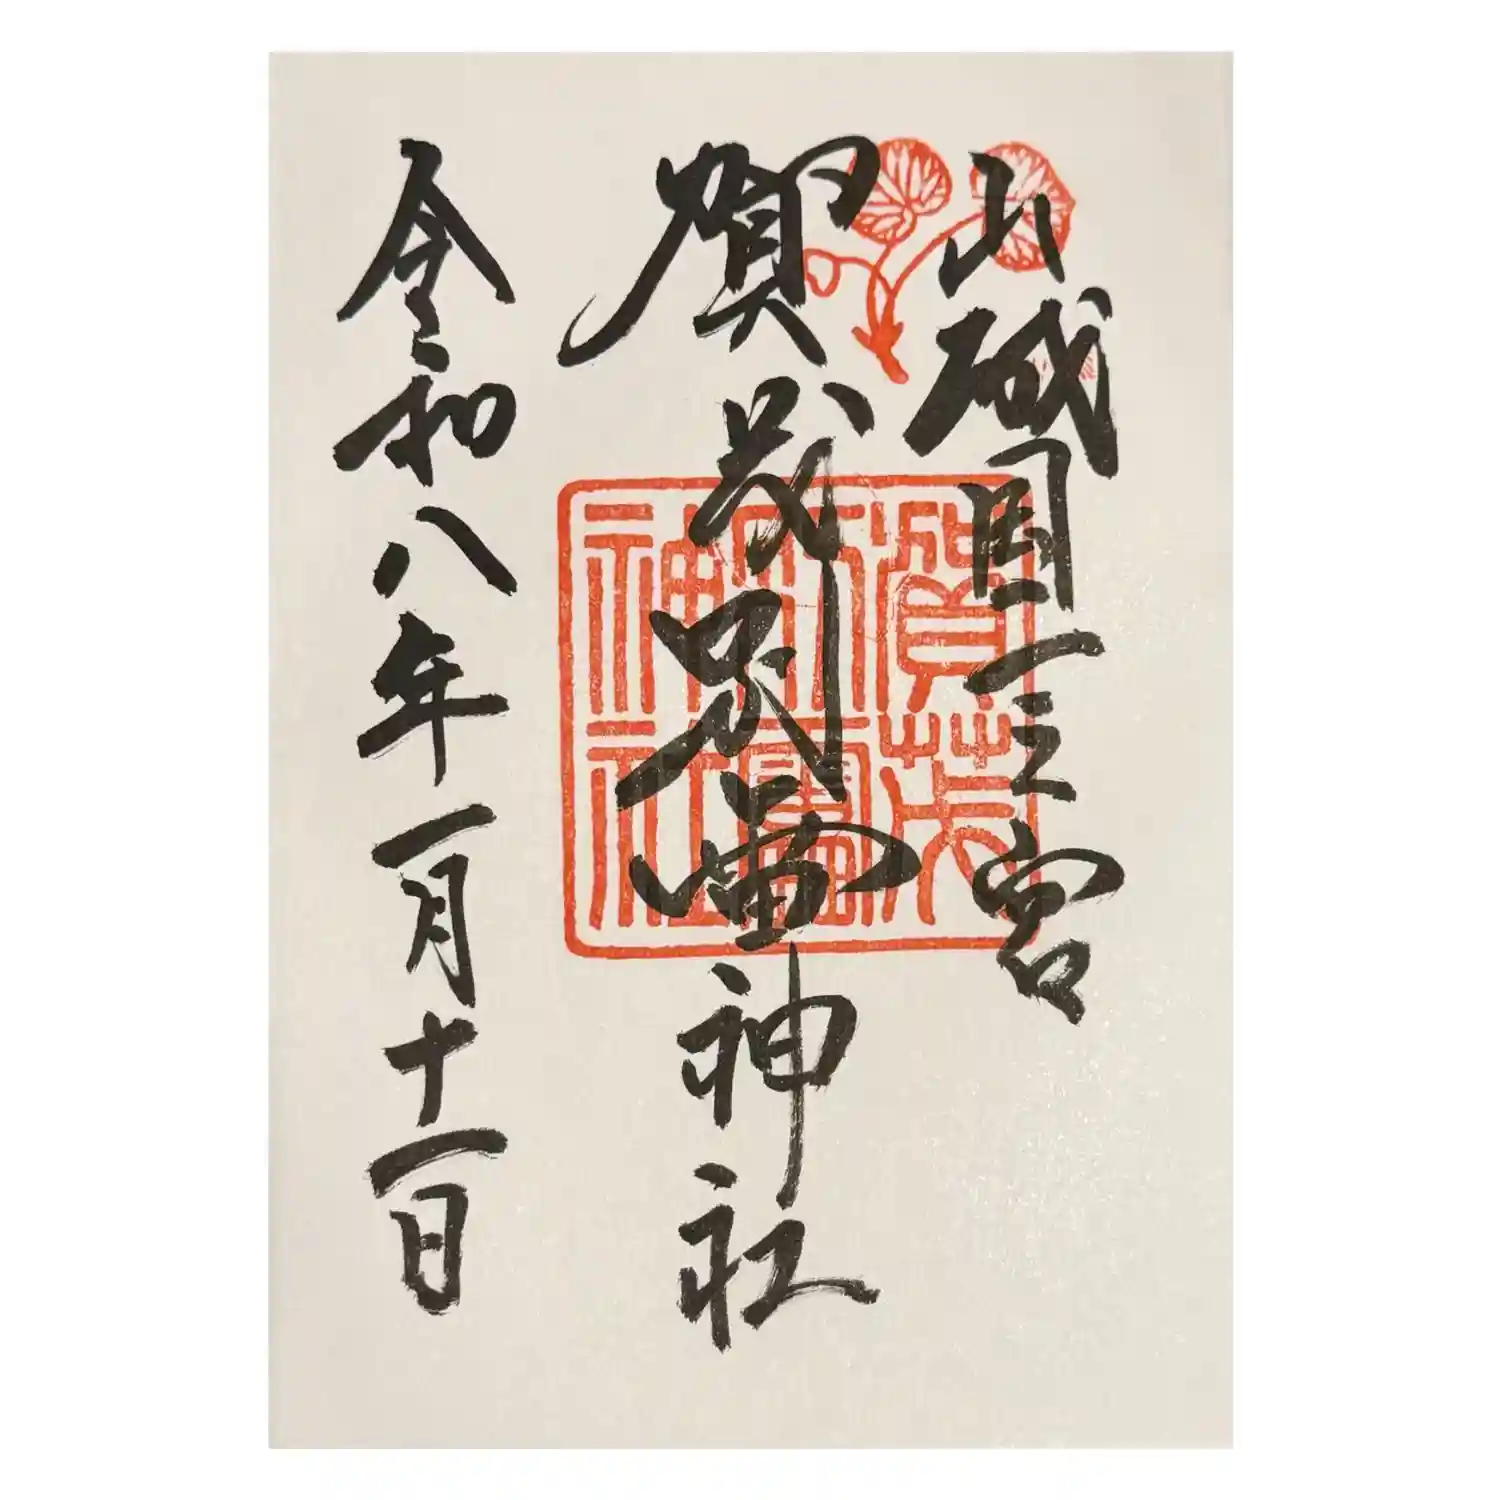 山城国一之宮
賀茂別雷神社
令和八年一月十一日
賀茂
別雷
神社